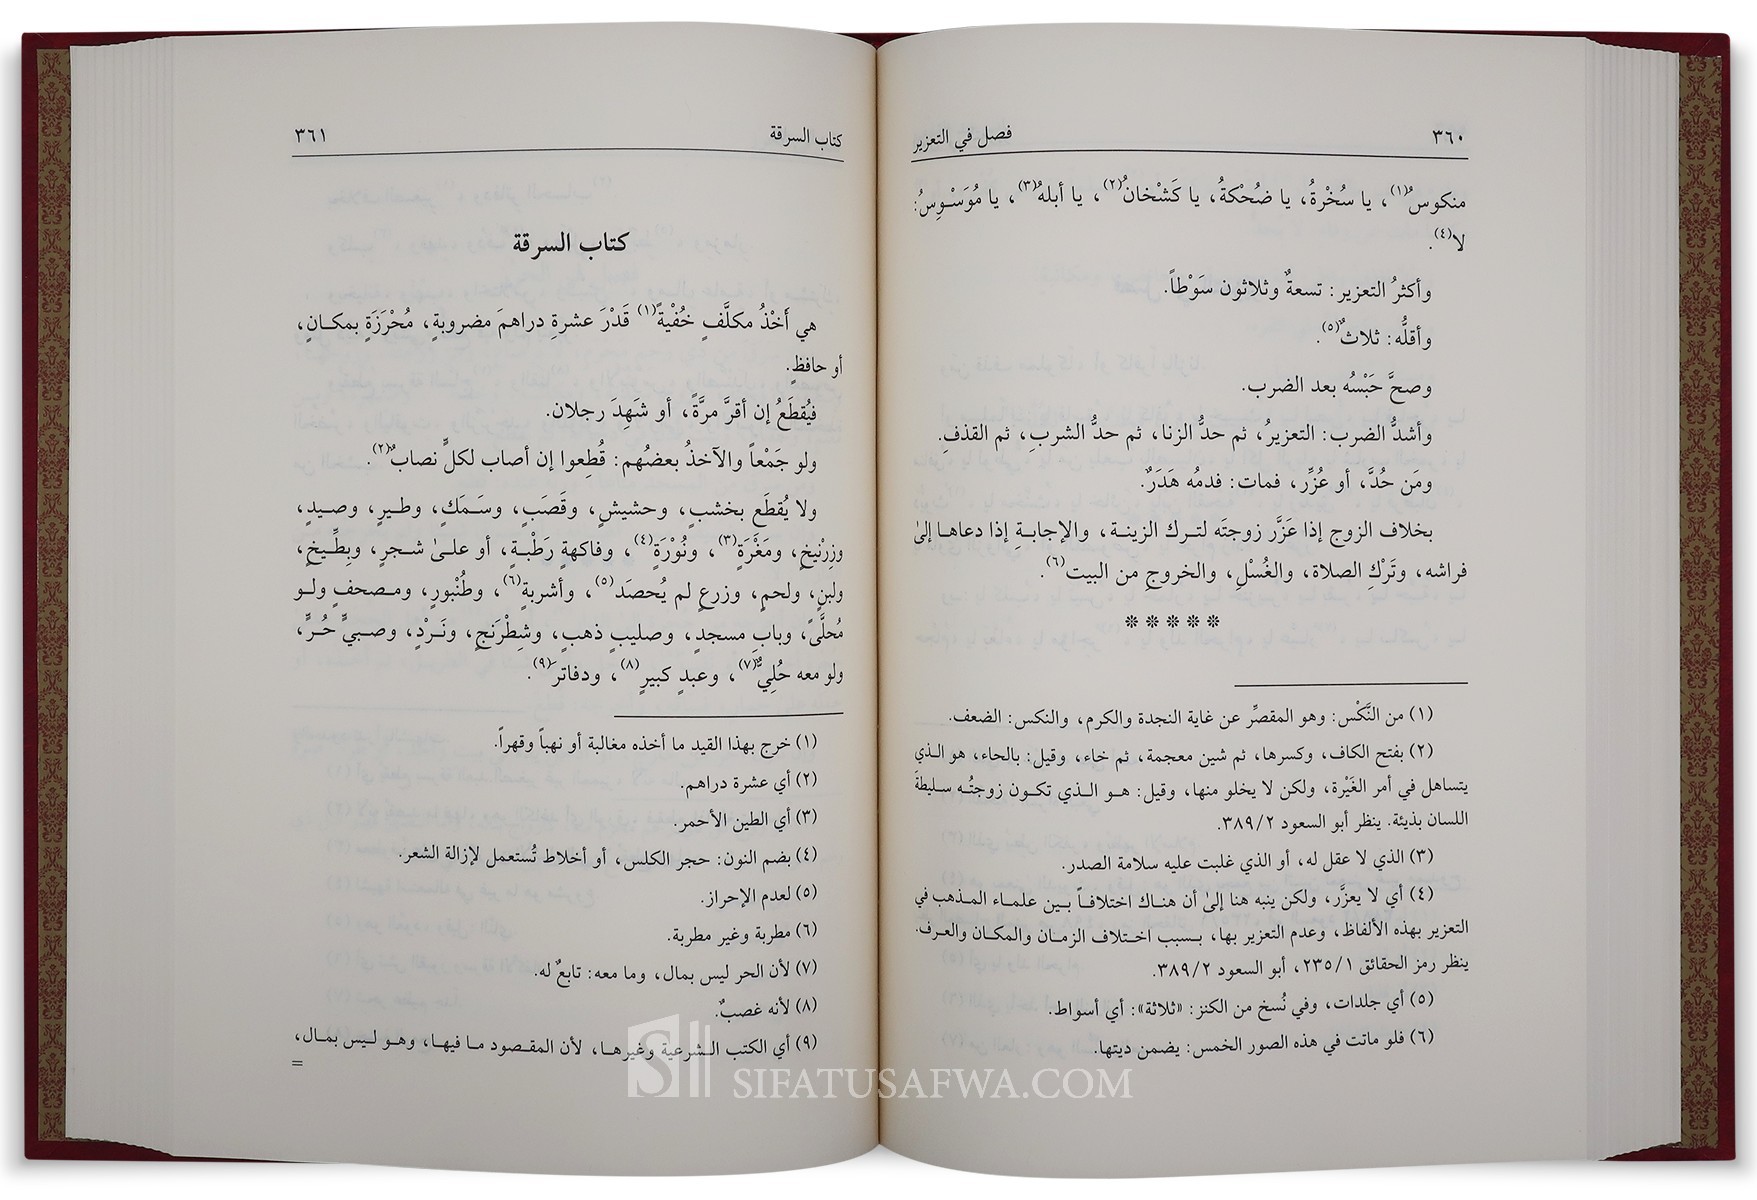 ٣٦٠ فصل في التعزير
منكوسٌ(١)، يا سُخْرةُ، يا ضُحْكةُ، يا كَشْخانٌ(٢)، يا أبلهُ(٣)، يا مُوَسْوِسُ:
لا(٤).
وأكثرُ التعزير: تسعةٌ وثلاثون سَوْطاً.
وأقلُّه: ثلاثٌ(٥).
وصحَّ حَبْسُه بعد الضرب.
وأشدُّ الضرب: التعزيرُ، ثم حدُّ الزنا، ثم حدُّ الشربِ، ثم القذفِ.
ومَن حُدَّ، أو عُزِّر، فمات: فدمُه هَدَرٌ.
بخلاف الزوج إذا عَزَّر زوجتَه لترك الزينة، والإجابةِ إذا دعاها إلىٰ
فراشه، وتَرْكِ الصلاة، والغُسْلِ، والخروجِ من البيت(٦).
❊❊❊❊❊
(١) من النَّكْس: وهو المقصِّر عن غاية النجدة والكرم، والنكس: الضعف.
(٢) بفتح الكاف، وكسرها، ثم شين معجمة، ثم خاء، وقيل: بالحاء، هو الذي
يتساهل في أمر الغَيْرة، ولكن لا يخلو منها، وقيل: هو الذي تكون زوجتُه سليطةَ
اللسان بذيئة. ينظر أبو السعود ٣٨٩/٢.
(٣) الذي لا عقل له، أو الذي غلبت عليه سلامة الصدر.
(٤) أي لا يعزَّر، ولكن ينبه هنا إلىٰ أن هناك اختلافاً بين علماء المذهب في
التعزير بهذه الألفاظ، وعدم التعزير بها، بسبب اختلاف الزمان والمكان والعرف.
ينظر رمز الحقائق ٢٣٥/١، أبو السعود ٣٨٩/٢.
(٥) أي جلدات، وفي نُسخ من الكنز: «ثلاثة»: أي أسواط.
(٦) فلو ماتت في هذه الصور الخمس: يضمن ديتها.
كتاب السرقة ٣٦١
كتاب السرقة
هي أَخْذُ مكلَّفٍ خُفْيةً(١) قَدْرَ عشرةِ دراهمَ مضروبةٍ، مُحْرَزَةٍ بمكانٍ،
أو حافظٍ.
فيُقطَعُ إن أقرَّ مرَّةً، أو شَهِدَ رجلان.
ولو جَمْعاً والآخذُ بعضُهم: قُطِعوا إن أصاب لكلٍّ نصابٌ(٢).
ولا يُقطَع بخشبٍ، وحشيشٍ، وقَصَبٍ، وسَمَكٍ، وطيرٍ، وصيدٍ،
وزِرْنيخٍ، ومَغْرَةٍ(٣)، ونُوْرَةٍ(٤)، وفاكهةٍ رَطْبةٍ، أو علىٰ شجرٍ، وبِطِّيخٍ،
ولبنٍ، ولحمٍ، وزرعٍ لم يُحصَد(٥)، وأشربةٍ(٦)، وطُنْبورٍ، ومصحفٍ ولو
مُحلَّىً، وبابِ مسجدٍ، وصليبِ ذهبٍ، وشِطْرَنجٍ، ونَرْدٍ، وصبيٍّ حُرٍّ،
ولو معه حُلِيٌّ(٧)، وعبدٍ كبيرٍ(٨)، ودفاترَ(٩).
(١) خرج بهذا القيد ما أخذه مغالبة أو نهباً وقهراً.
(٢) أي عشرة دراهم.
(٣) أي الطين الأحمر.
(٤) بضم النون: حجر الكلس، أو أخلاط تُستعمل لإزالة الشعر.
(٥) لعدم الإحراز.
(٦) مطربة وغير مطربة.
(٧) لأن الحر ليس بمال، وما معه: تابعٌ له.
(٨) لأنه غصبٌ.
(٩) أي الكتب الشرعية وغيرها، لأن المقصود ما فيها، وهو ليس بمال،
=
SIFATUSAFWA.COM